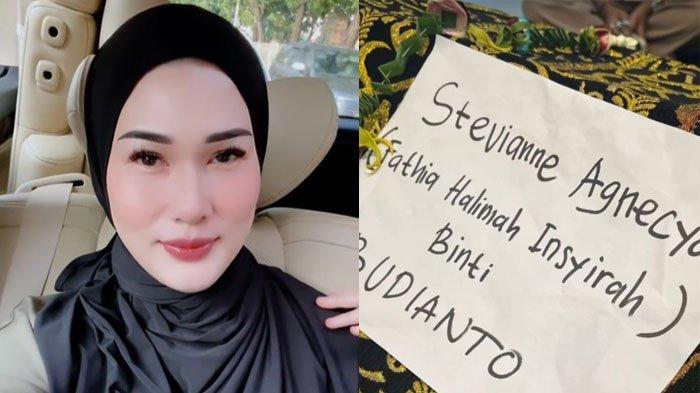 Stevianne Agnecya
(Fathia Halimah Insyirah)
Binti
BUDIANTO